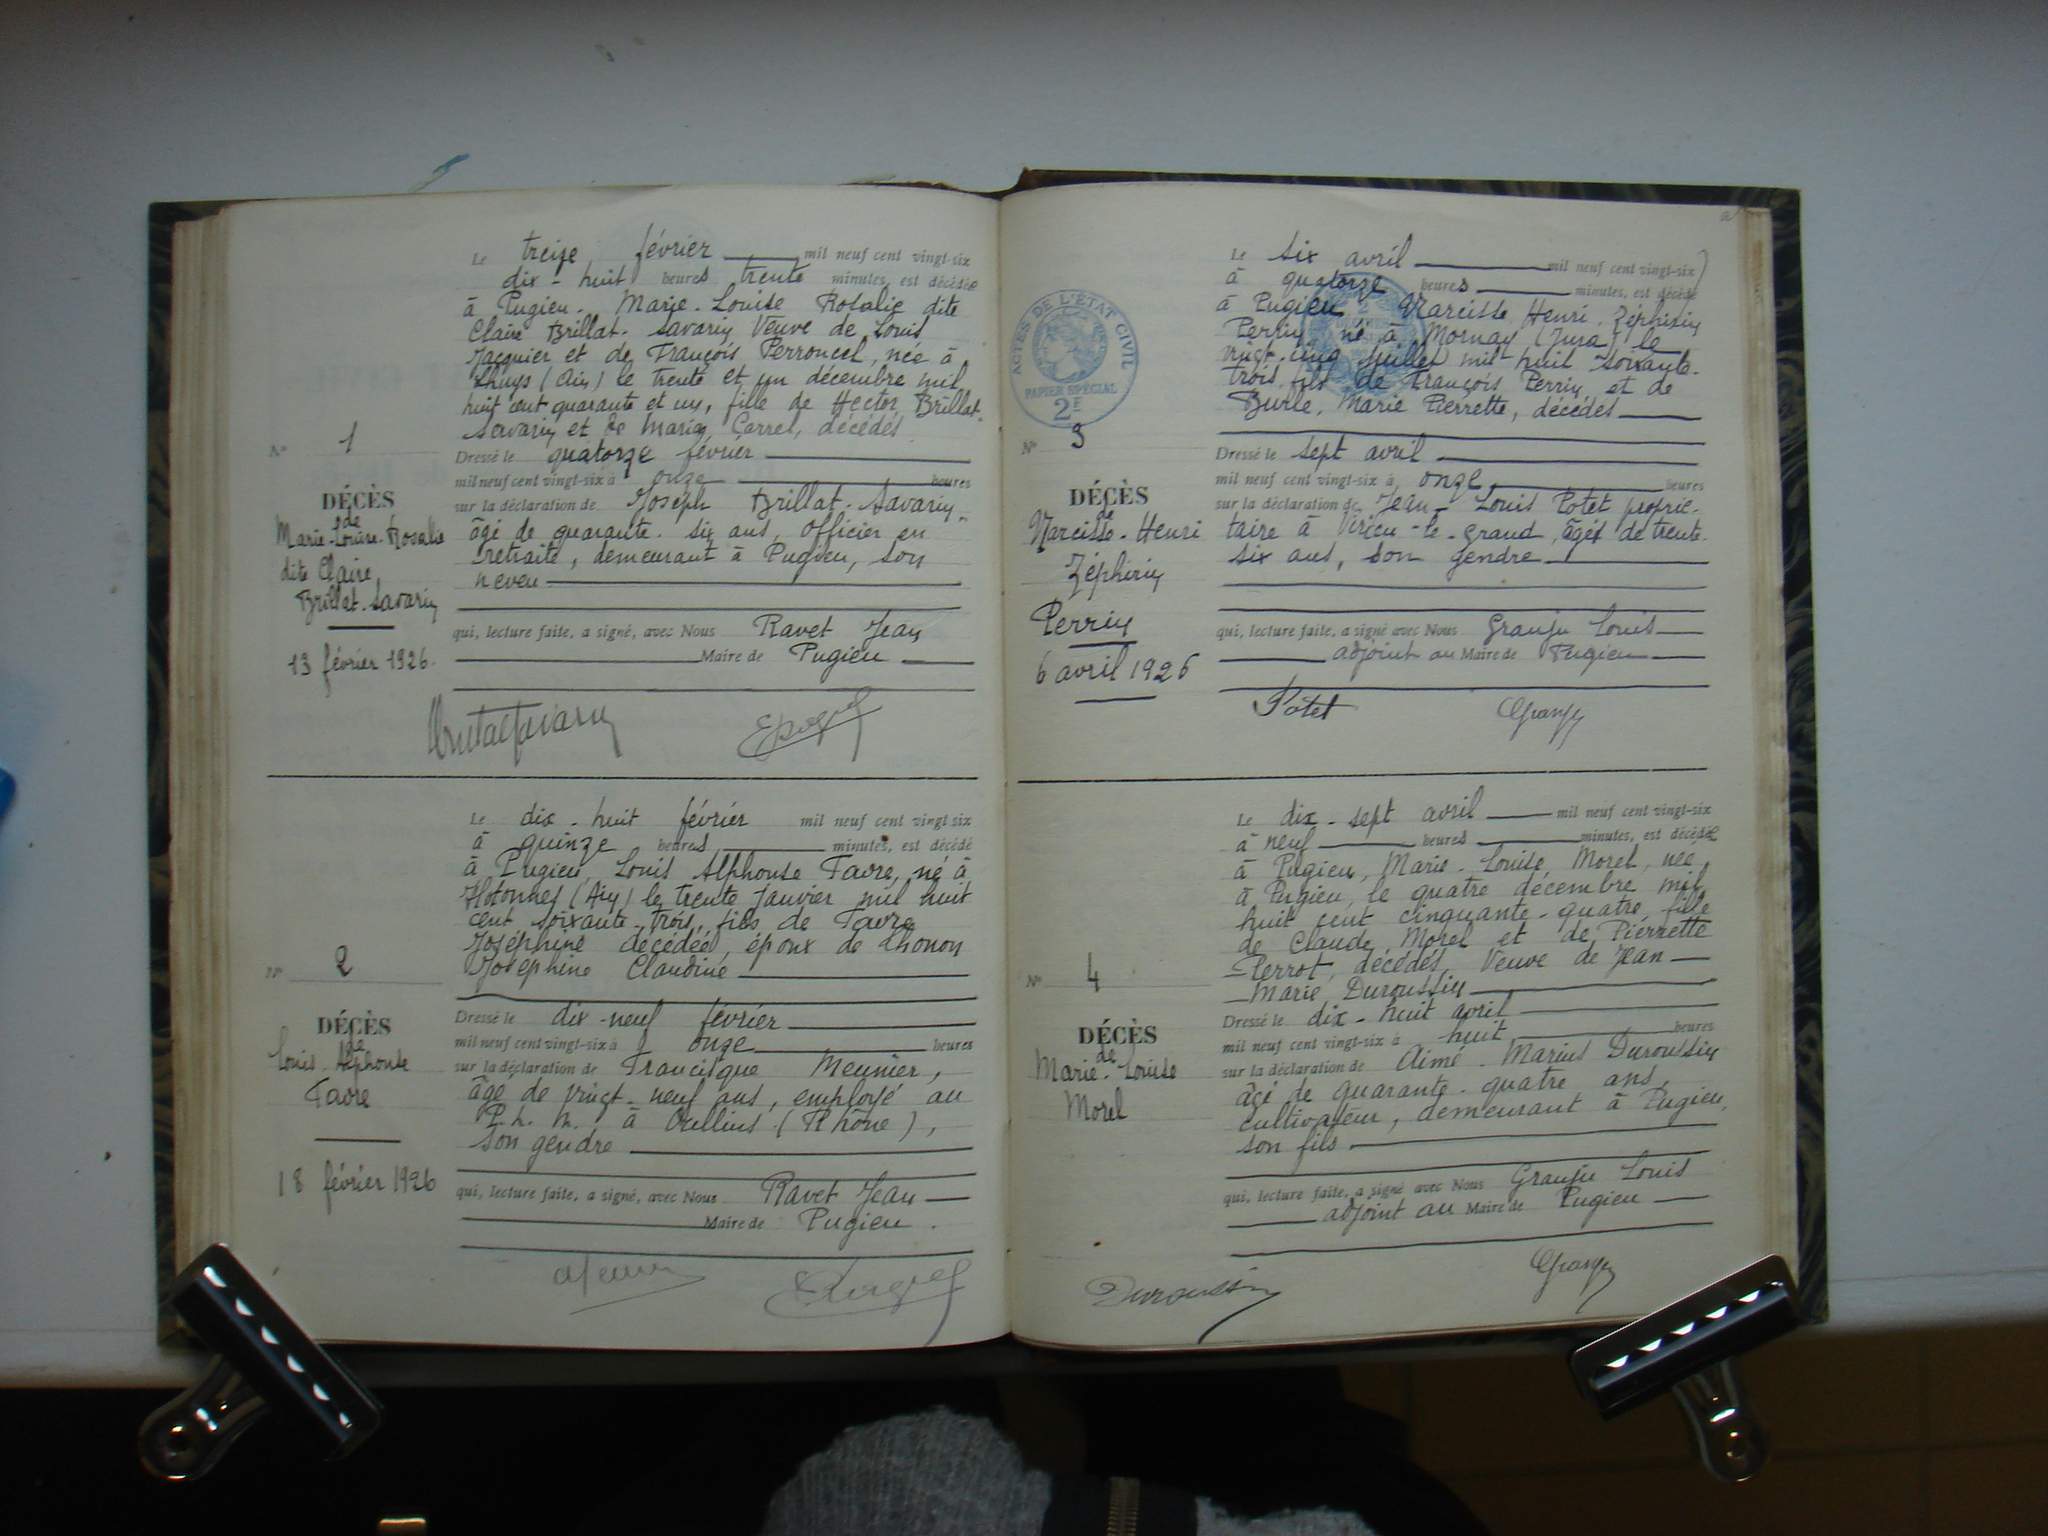 Le treize février mil neuf cent vingt-six
dix-huit heures trente minutes, est décédée
à Pugieu. Marie-Louise Rosalie dite
Claire Brillat-Savarin Veuve de Louis
Jacquier et de François Perroncel, née à
Lhuys (Ain) le trente et un décembre mil
huit cent quarante et un, fille de Hector Brillat-
Savarin et de Maria Carrel, décédés
N° 1
DÉCÈS
de
Marie-Louise-Rosalie
dite Claire
Brillat-Savarin
13 février 1926.
Dressé le quatorze février
mil neuf cent vingt-six à onze heures
sur la déclaration de Joseph Brillat-Savarin
âgé de quarante-six ans, officier en
retraite, demeurant à Pugieu, son
neveu
qui, lecture faite, a signé, avec Nous Ravet Jean
Maire de Pugieu
Le dix-huit février mil neuf cent vingt-six
à quinze heures minutes, est décédé
à Pugieu, Louis Alphonse Favre, né à
Hotonnes (Ain) le trente janvier mil huit
cent soixante-trois, fils de Favre
Joséphine décédée, époux de Lhonon
Joséphine Claudine
N° 2
DÉCÈS
de
Louis Alphonse
Favre
18 février 1926
Dressé le dix-neuf février
mil neuf cent vingt-six à onze heures
sur la déclaration de Francisque Meunier,
âgé de vingt-neuf ans, employé au
P.L.M., à Oullins (Rhône),
son gendre
qui, lecture faite, a signé, avec Nous Ravet Jean
Maire de Pugieu.
ACTES DE L'ÉTAT CIVIL
PAPIER SPÉCIAL
2E
Le six avril mil neuf cent vingt-six
à quatorze heures minutes, est décédé
à Pugieu Narcisse Henri Zéphirin
Perrin né à Mornay (Jura) le
vingt-cinq juillet mil huit soixante-
trois, fils de François Perrin et de
Burle, Marie Pierrette, décédés
N° 3
DÉCÈS
de
Narcisse-Henri
Zéphirin
Perrin
6 avril 1926
Dressé le sept avril
mil neuf cent vingt-six à onze heures
sur la déclaration de Jean-Louis Potet proprié-
taire à Virieu-le-Grand, âgés de trente-
six ans, son gendre
qui, lecture faite, a signé avec Nous Granju Louis
adjoint au Maire de Pugieu
Potet
Le dix-sept avril mil neuf cent vingt-six
à neuf heures minutes, est décédée
à Pugieu, Marie-Louise Morel, née
à Pugieu, le quatre décembre mil
huit cent cinquante-quatre, fille
de Claude Morel et de Pierrette
Perrot, décédés, Veuve de Jean
Marie Duroussin
N° 4
DÉCÈS
de
Marie-Louise
Morel
Dressé le dix-huit avril
mil neuf cent vingt-six à huit heures
sur la déclaration de Aimé-Marius Duroussin
âgé de quarante-quatre ans,
cultivateur, demeurant à Pugieu,
son fils
qui, lecture faite, a signé avec Nous Granju Louis
adjoint au Maire de Pugieu
Duroussin